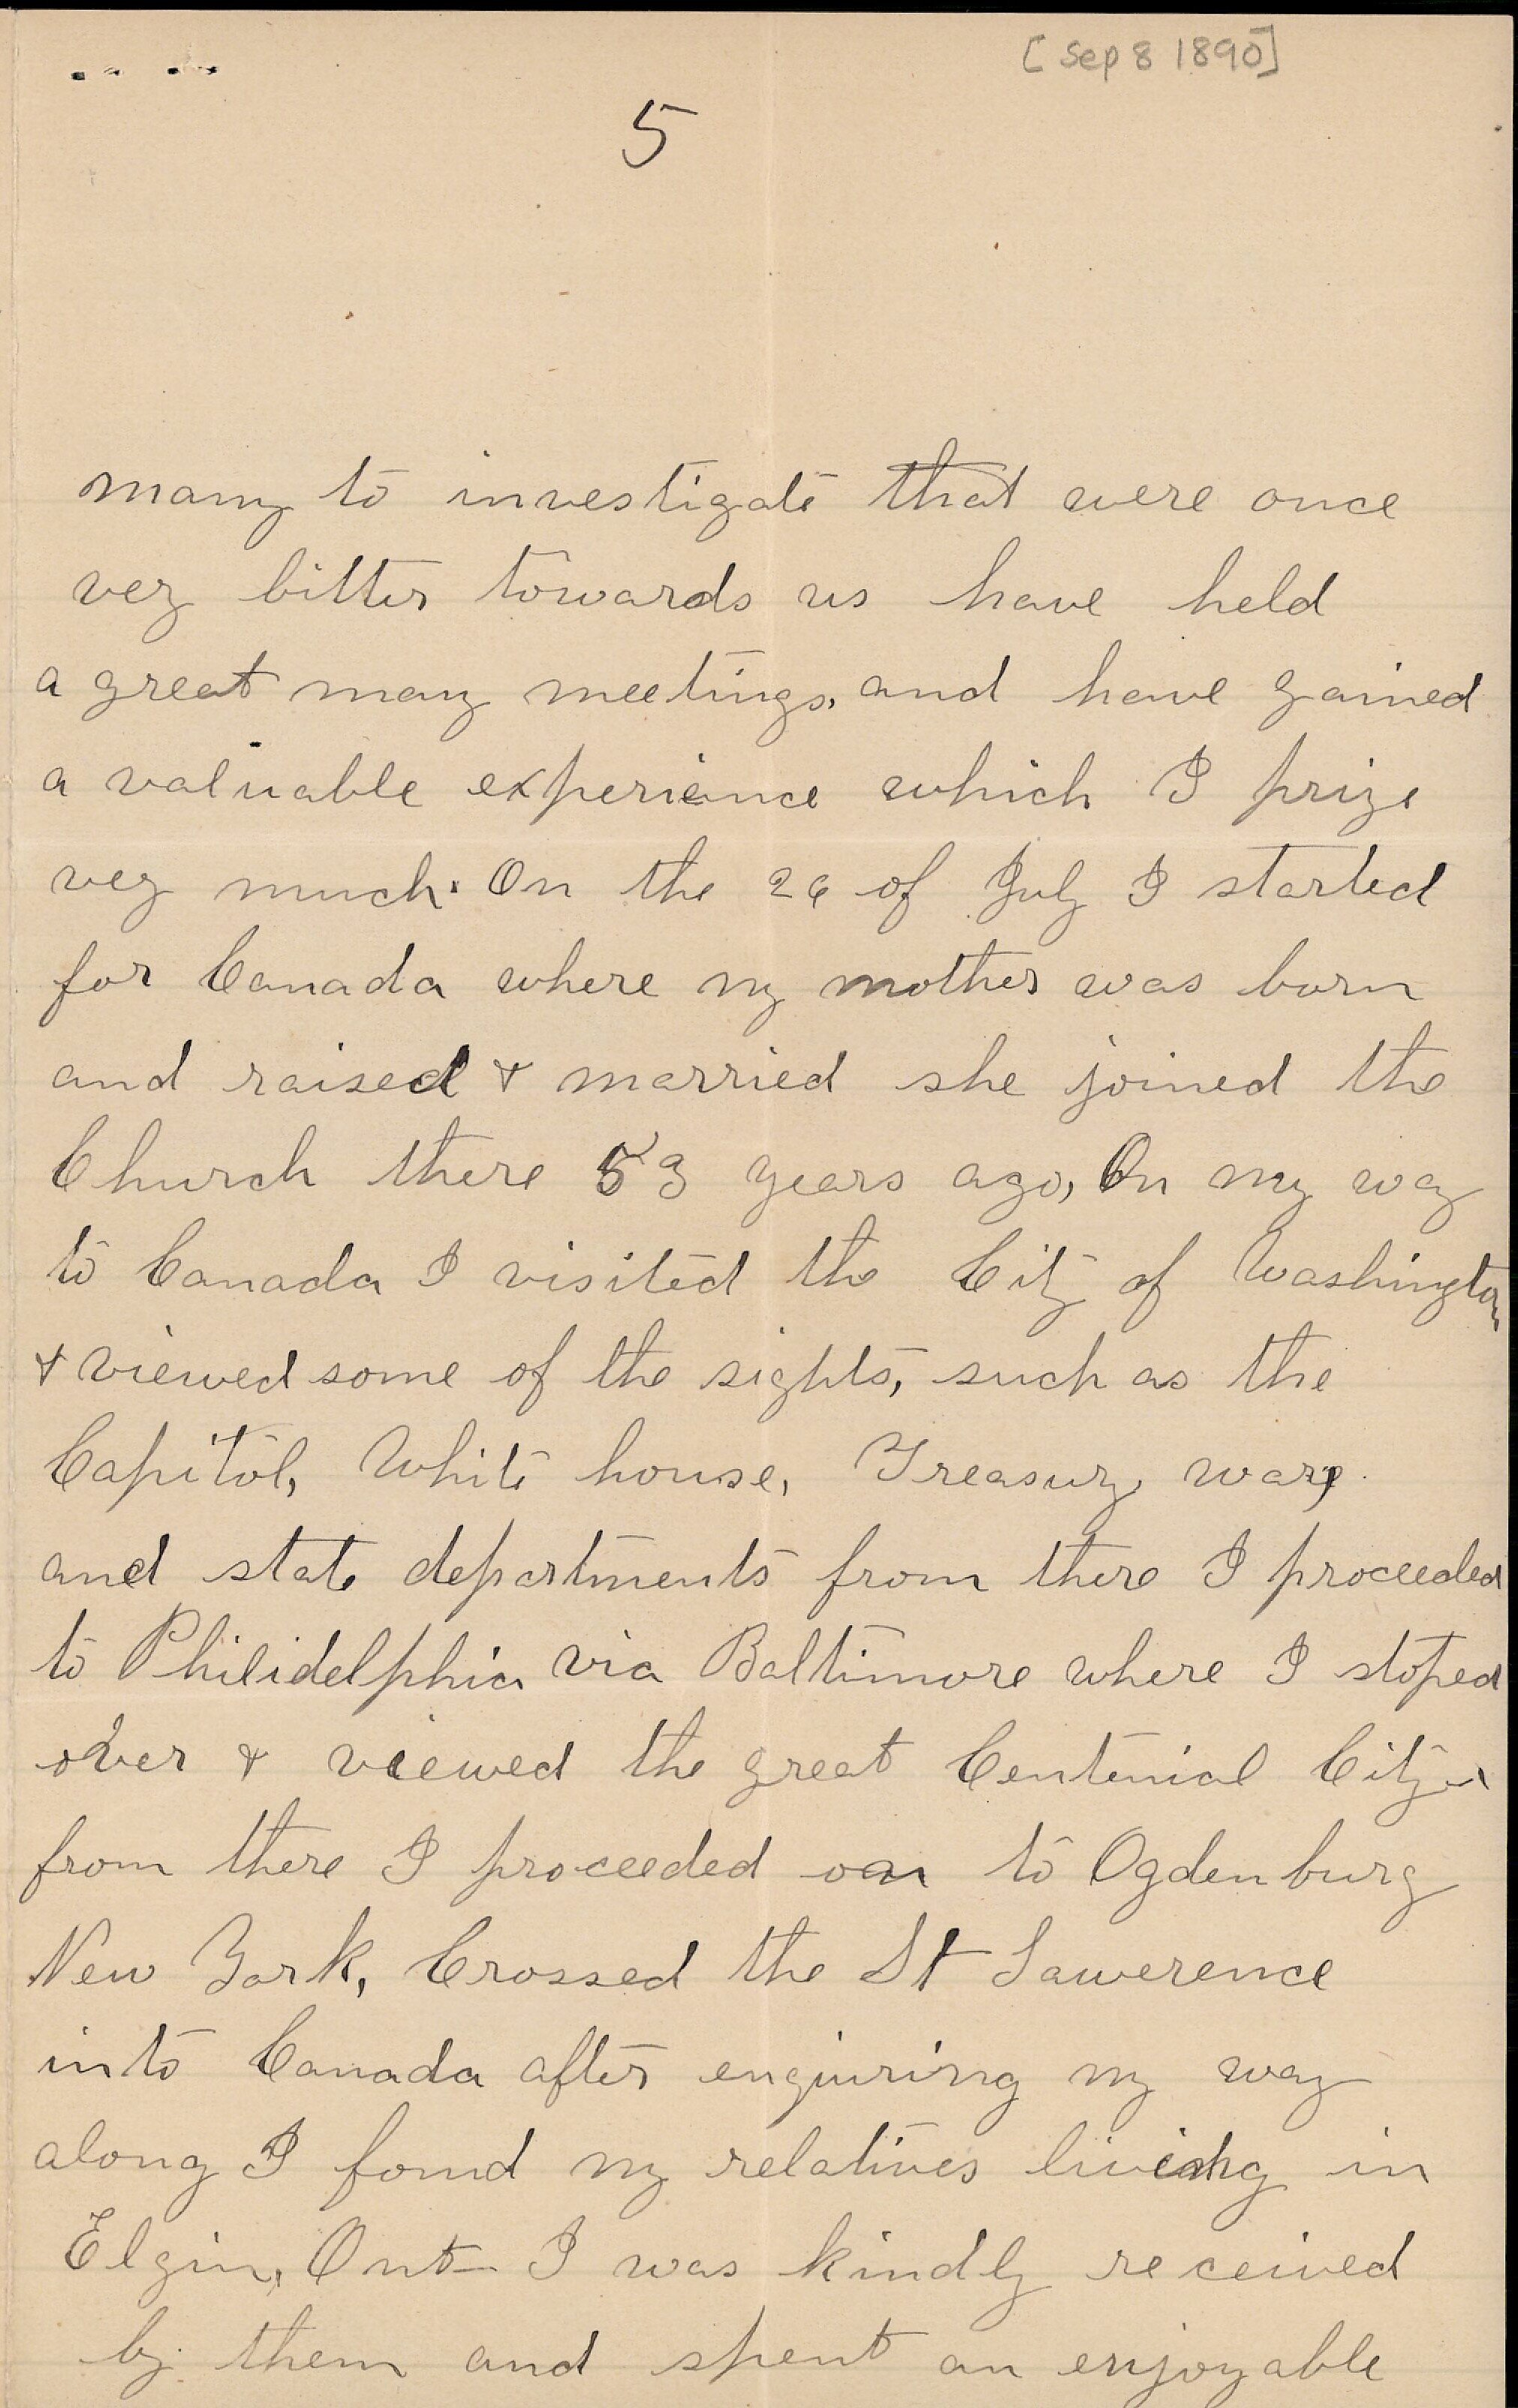 [Sep 8 1890]
5
many to investigate that were once
very bitter towards us have held
a great many meetings, and have gained
a valuable experiance which I prize
very much. On the 26 of July I started
for Canada where my mother was born
and raised & married she joined the
Church there 53 years ago, On my way
to Canada I visited the City of Washington
& viewed some of the sights, such as the
Capitol, White house, Treasury, war,
and state departments from there I proceeded
to Philidelphia via Baltimore where I stoped
over & viewed the great Centenial City
from there I proceeded on to Ogdenburg
New York, Crossed the St Lawerence
into Canada after enquiring my way
along I found my relatives living in
Elgin, Ont— I was kindly received
by them and spent an enjoyable